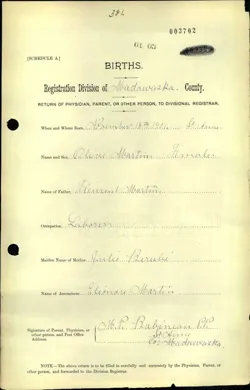 386
003702
01 03
[SCHEDULE A.]
BIRTHS.
Registration Division of Madawaska County.
RETURN OF PHYSICIAN, PARENT, OR OTHER PERSON, TO DIVISIONAL REGISTRAR.
When and Where Born,
Name and Sex, Martin Female
Name of Father, Martin
Occupation, Laborer
Maiden Name of Mother, Julie Berubé
Name of Accoucheur, Eleonore Martin
Signature of Parent, Physician, or
other person, and Post Office
Address
M. P. Babineau P.P.
Co. Madawaska
NOTE.—The above return is to be filled in carefully and accurately by the Physician, Parent, or
other person, and forwarded to the Division Registrar.